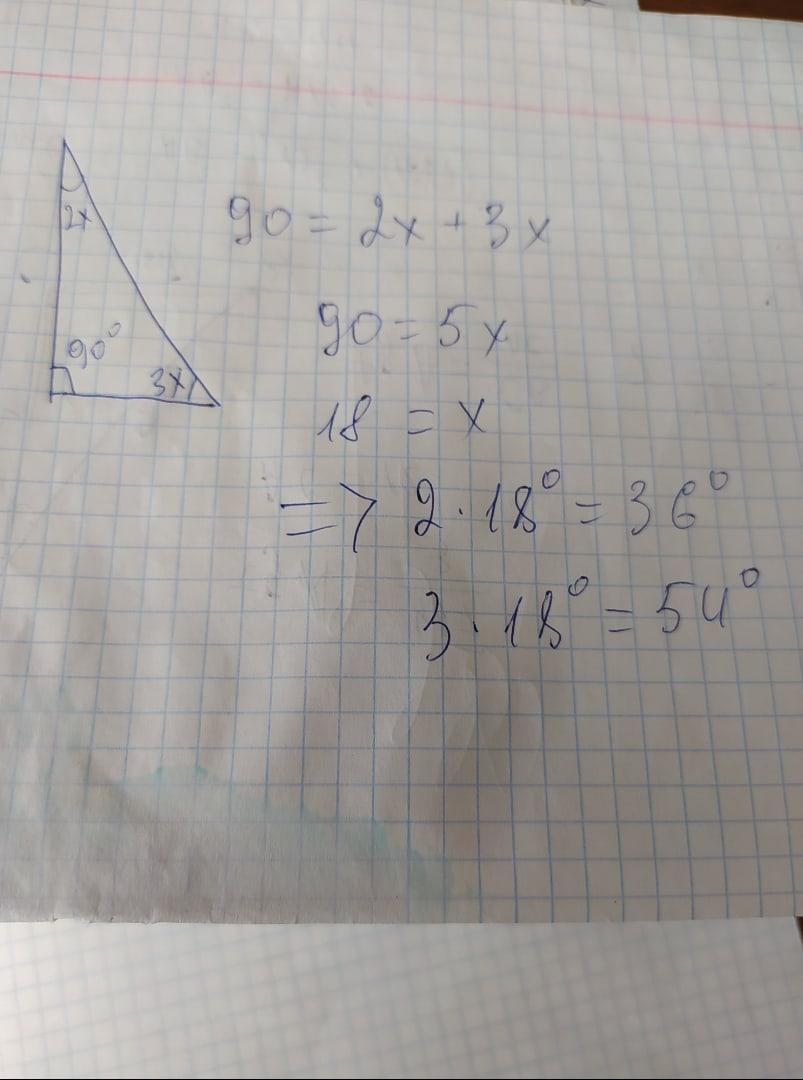 2x
90°
3x
90 = 2x + 3x
90 = 5x
18 = x
=> 2 · 18° = 36°
3 · 18° = 54°